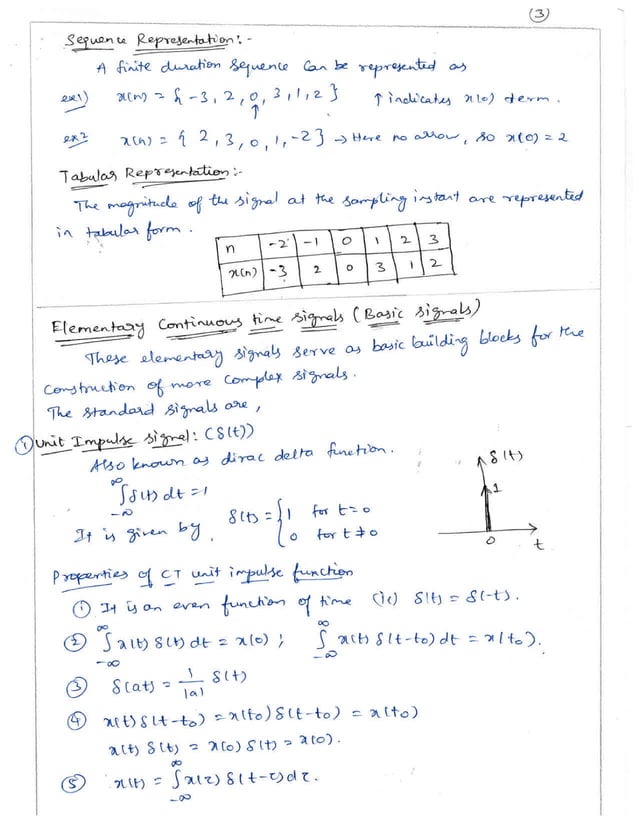 (3)
Sequence Representation:-
A finite duration sequence can be represented as
ex1) x(n) = {-3, 2, 0, 3, 1, 2} ↑ indicates x(0) term.
↑
ex2 x(n) = { 2, 3, 0, 1, -2} → Here no arrow, so x(0) = 2
Tabular Representation:-
The magnitude of the signal at the sampling instant are represented
in tabular form.
n -2 -1 0 1 2 3
x(n) -3 2 0 3 1 2
Elementary Continuous time signals (Basic signals)
These elementary signals serve as basic building blocks for the
Construction of more complex signals.
The standard signals are,
① Unit Impulse signal: (δ(t))
Also known as dirac delta function.
∞
∫ δ(t) dt = 1
-∞
It is given by, δ(t) = { 1 for t=0
0 for t≠0
δ(t)
1
0
t
Properties of CT unit impulse function
① It is an even function of time (ie) δ(t) = δ(-t).
∞ ∞
② ∫ x(t) δ(t) dt = x(0) ; ∫ x(t) δ(t-t₀) dt = x(t₀).
-∞ -∞
③ δ(at) = 1/|a| δ(t)
④ x(t) δ(t-t₀) = x(t₀) δ(t-t₀) = x(t₀)
x(t) δ(t) = x(0) δ(t) = x(0).
∞
⑤ x(t) = ∫ x(τ) δ(t-τ) dτ.
-∞